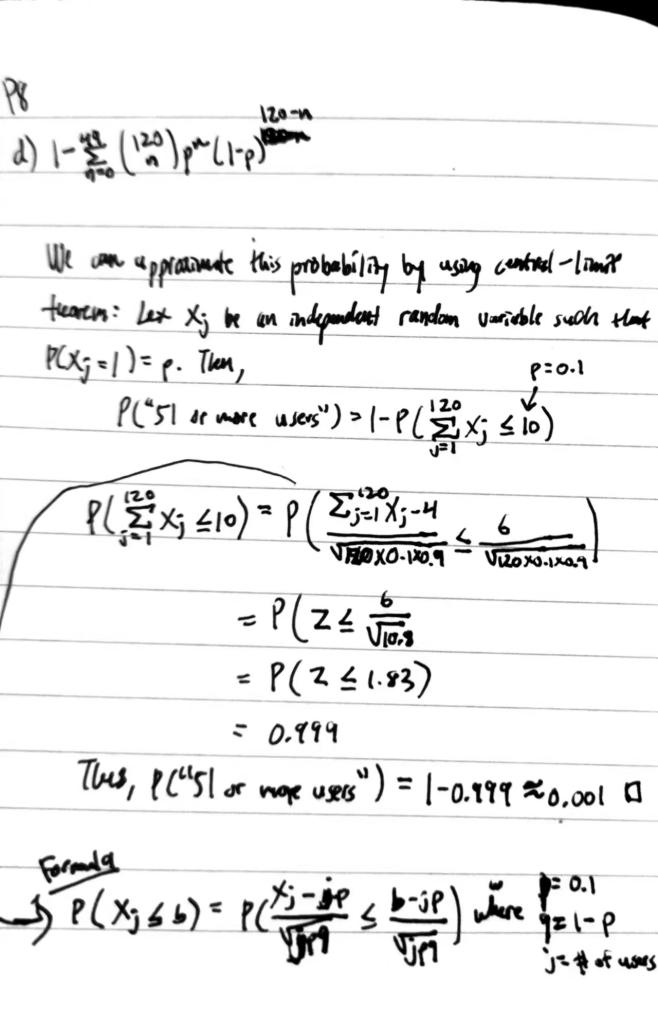 P8
d) 1-∑_{n=0}^{49} (120 n) p^n (1-p)^{120-n}
We can approximate this probability by using central-limit
theorem: Let Xj be an independent random variable such that
P(Xj=1)=p. Then,
p=0.1
P("51 or more users") = 1-P(∑_{j=1}^{120} Xj ≤ 10)
P(∑_{j=1}^{120} Xj ≤ 10) = P( (∑_{j=1}^{120} Xj-4)/√(120×0.1×0.9) ≤ 6/√(120×0.1×0.9) )
= P(Z ≤ 6/√10.8
= P(Z ≤ 1.83)
= 0.999
Thus, P("51 or more users") = 1-0.999 ≈ 0.001 □
Formula
P(Xj ≤ b) = P( (Xj - jp)/√(jpq) ≤ (b-jp)/√(jpq) ) where p= 0.1
q=1-p
j= # of users